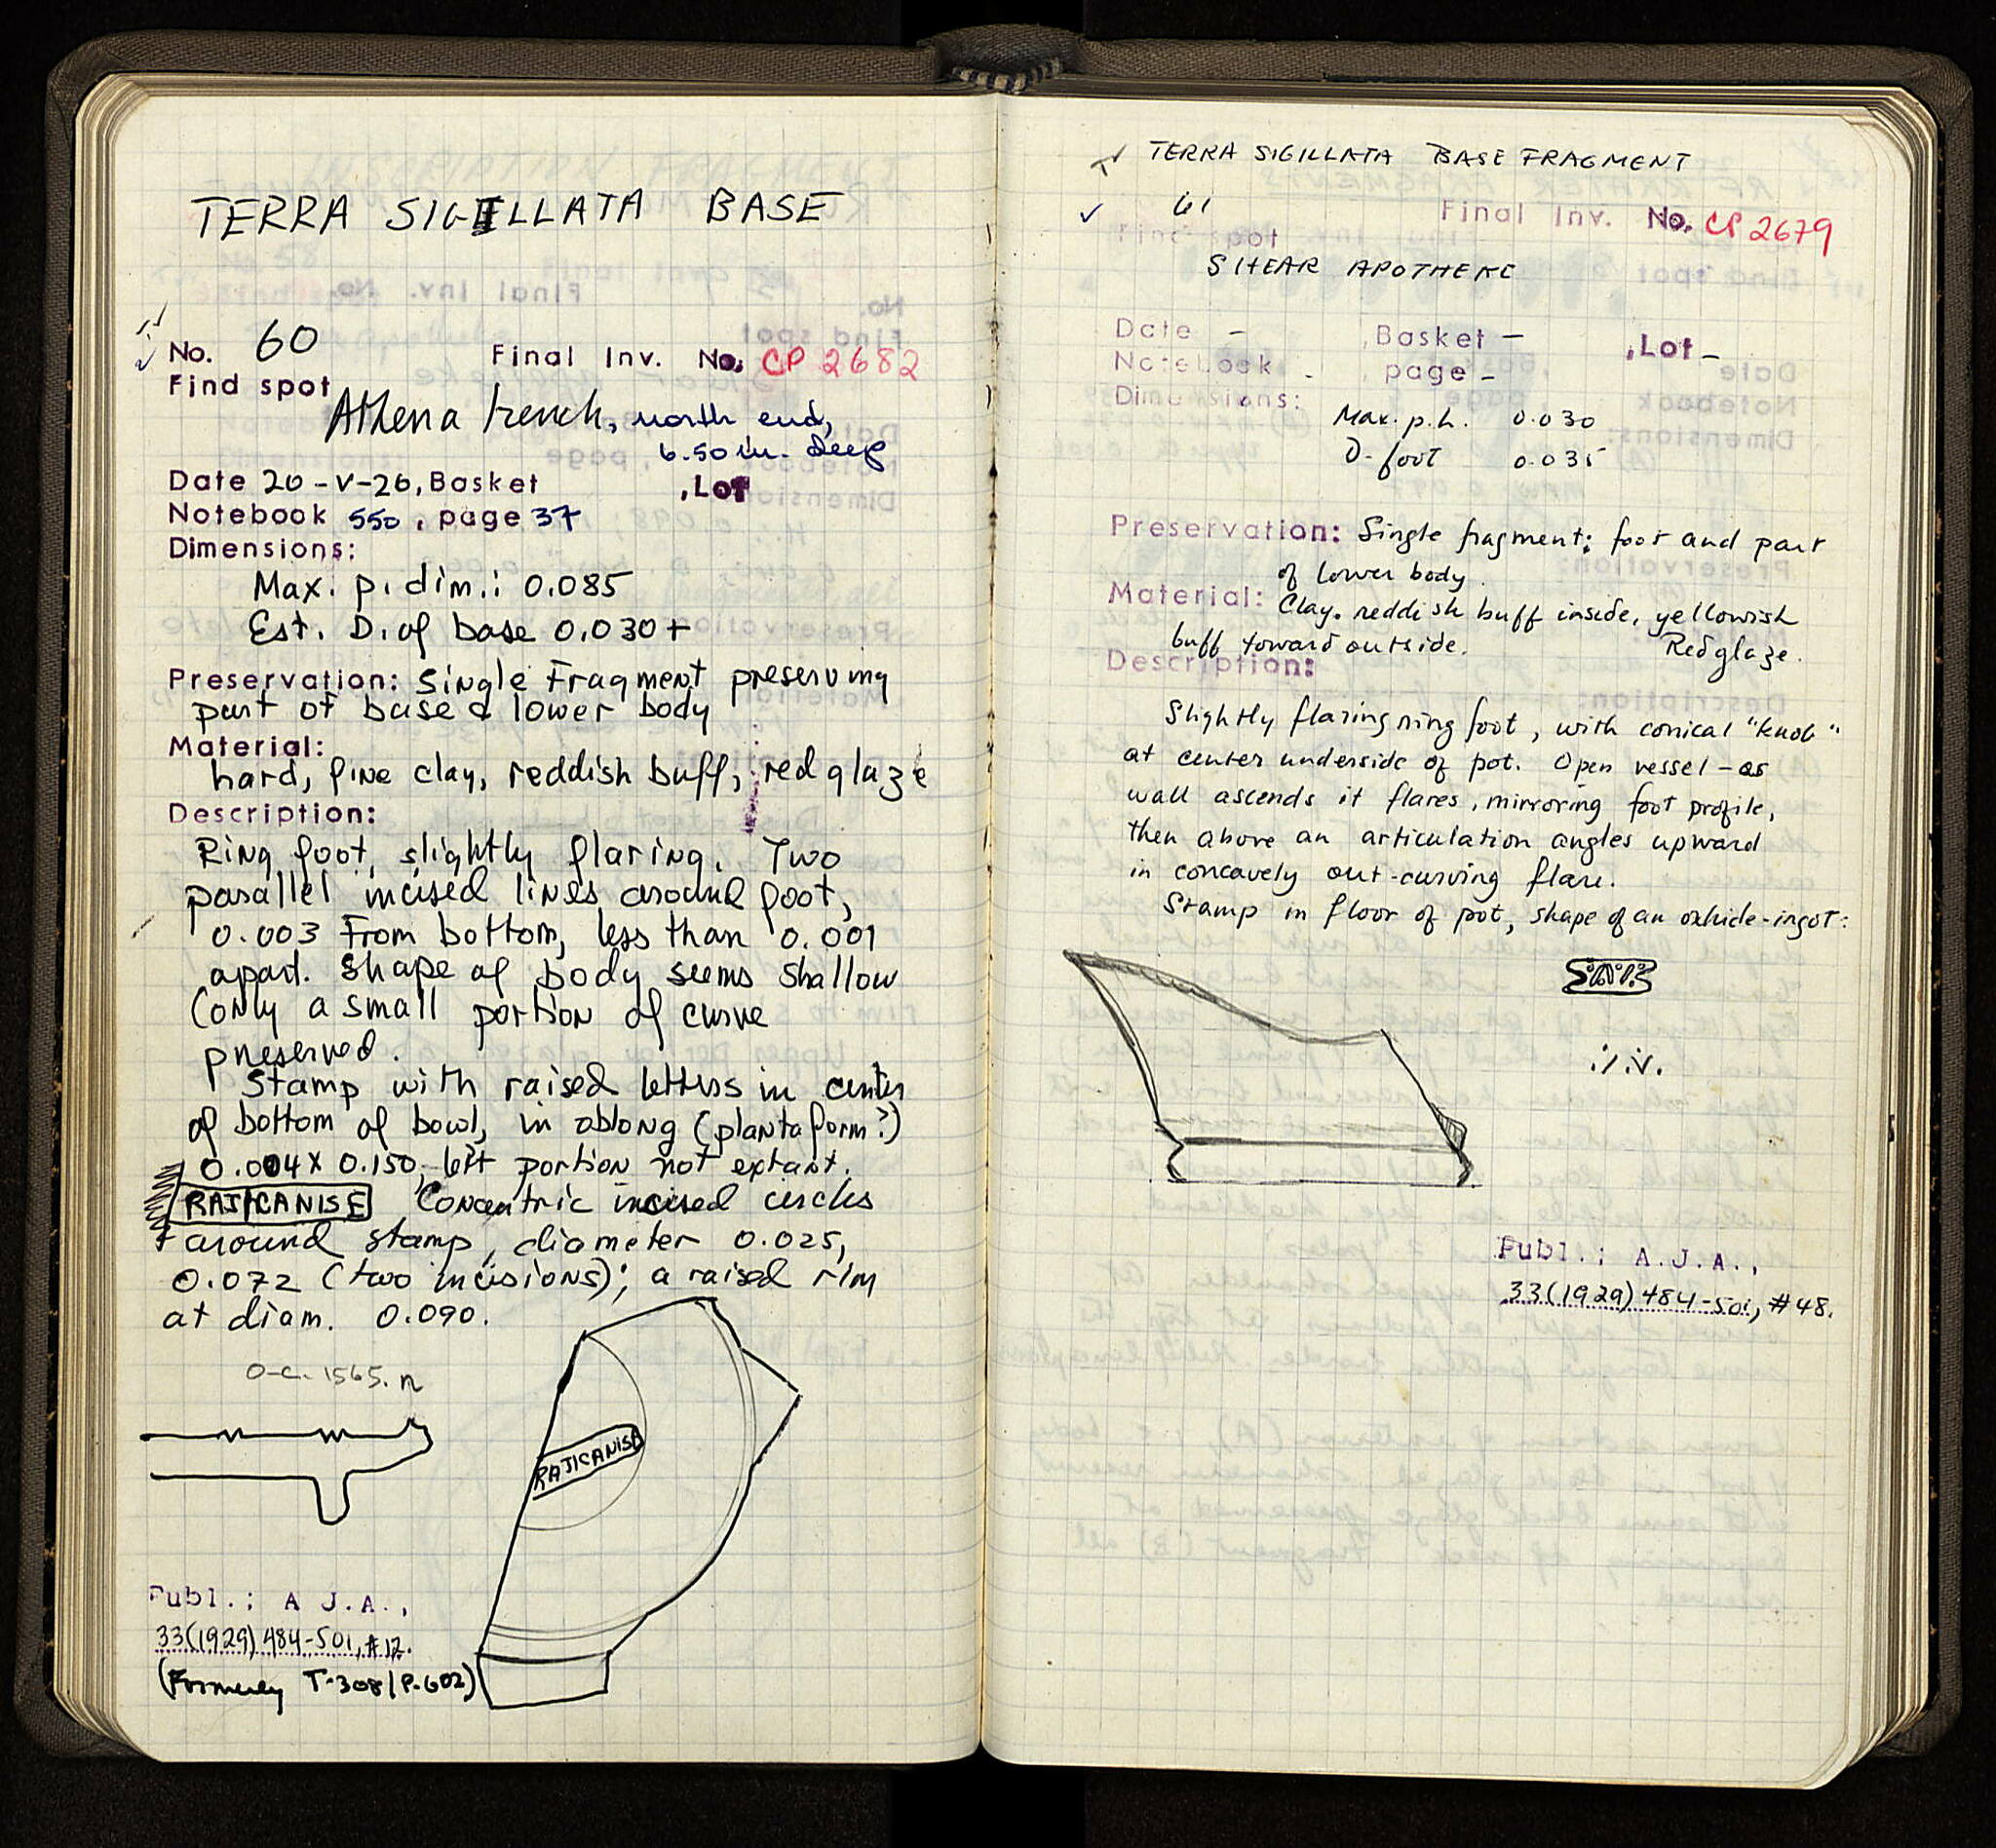 TERRA SIGILLATA BASE
No. 60 Final Inv. No. CP 2682
Find spot
Athena trench, north end,
6.50 m. deep
Date 20-V-26, Basket , Lot
Notebook 550, page 37
Dimensions:
Max. p. dim.: 0.085
Est. D. of base 0.030+
Preservation: Single Fragment preserving
part of base & lower body
Material:
hard, fine clay, reddish buff, red glaze
Description:
Ring foot, slightly flaring. Two
parallel incised lines around foot,
0.003 From bottom, less than 0.001
apart. Shape of body seems shallow
(only a small portion of curve
preserved.
Stamp with raised letters in center
of bottom of bowl, in oblong (planta form?)
0.004 x 0.150, left portion not extant.
RAJICANISE Concentric incised circles
around stamp, diameter 0.025,
0.072 (two incisions); a raised rim
at diam. 0.090.
O-C. 1565. n
RAJICANISE
Publ.; A J.A.,
33(1929) 484-501, #12.
(Formerly T-308/P-602)
TERRA SIGILLATA BASE FRAGMENT
61 Final Inv. No. CP 2679
Find spot
SHEAR APOTHEKE
Date - , Basket - , Lot -
Notebook - , page -
Dimensions:
Max. p.h. 0.030
D. foot 0.035
Preservation: Single fragment; foot and part
of lower body.
Material: Clay. reddish buff inside, yellowish
buff toward outside. Red glaze.
Description:
Slightly flaring ring foot, with conical "knob"
at center underside of pot. Open vessel - as
wall ascends it flares, mirroring foot profile,
then above an articulation angles upward
in concavely out-curving flare.
Stamp in floor of pot, shape of an oxhide-ingot:
Publ.; A.J.A.,
33(1929) 484-501, #48.